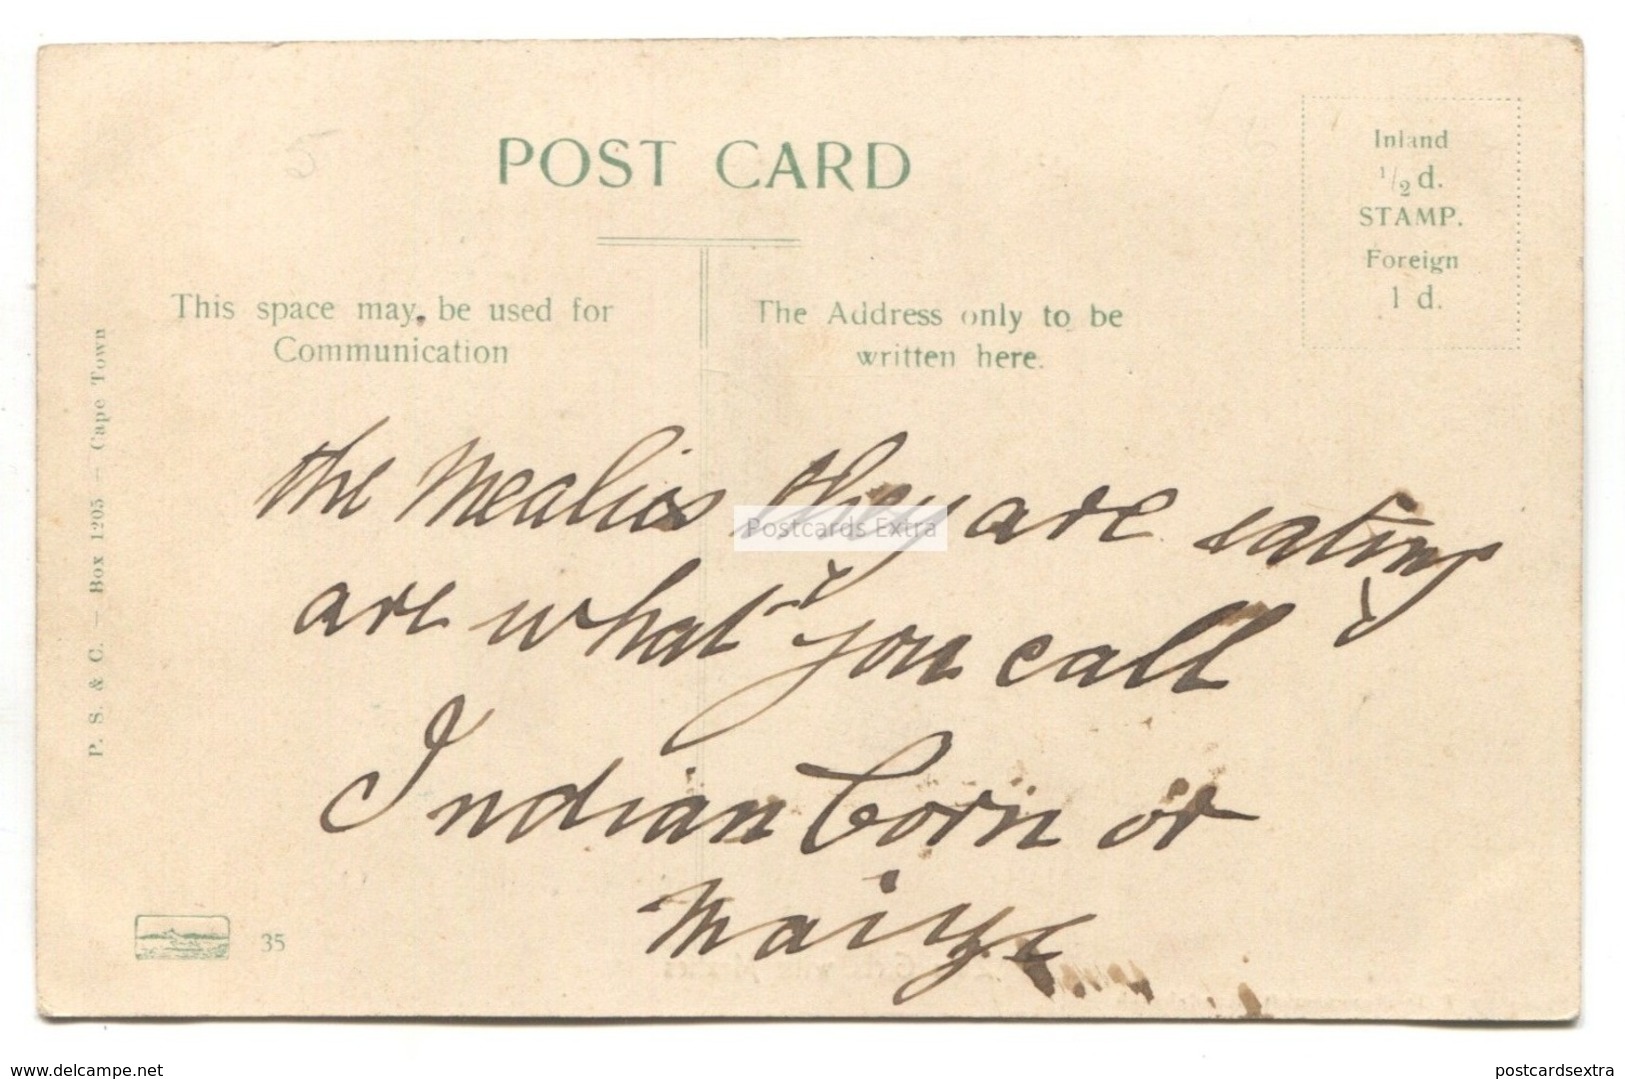 POST CARD
Inland
1/2 d.
STAMP.
Foreign
1 d.
This space may be used for
Communication
The Address only to be
written here.
P. S. & C. — Box 1205 — Cape Town
the Mealies they are eating
are what you call
Indian Corn or
Maize
Postcards Extra
35
www.delcampe.net
postcardsextra